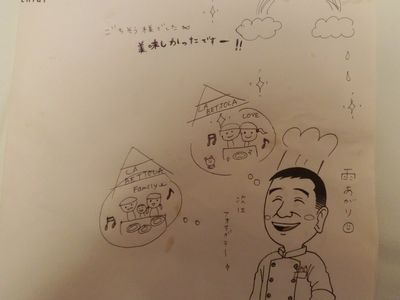 ごちそう様でした
美味しかったですー!!
LA
BETTOLA
LOVE
LA
BETTOLA
Family
次は
雨あがり